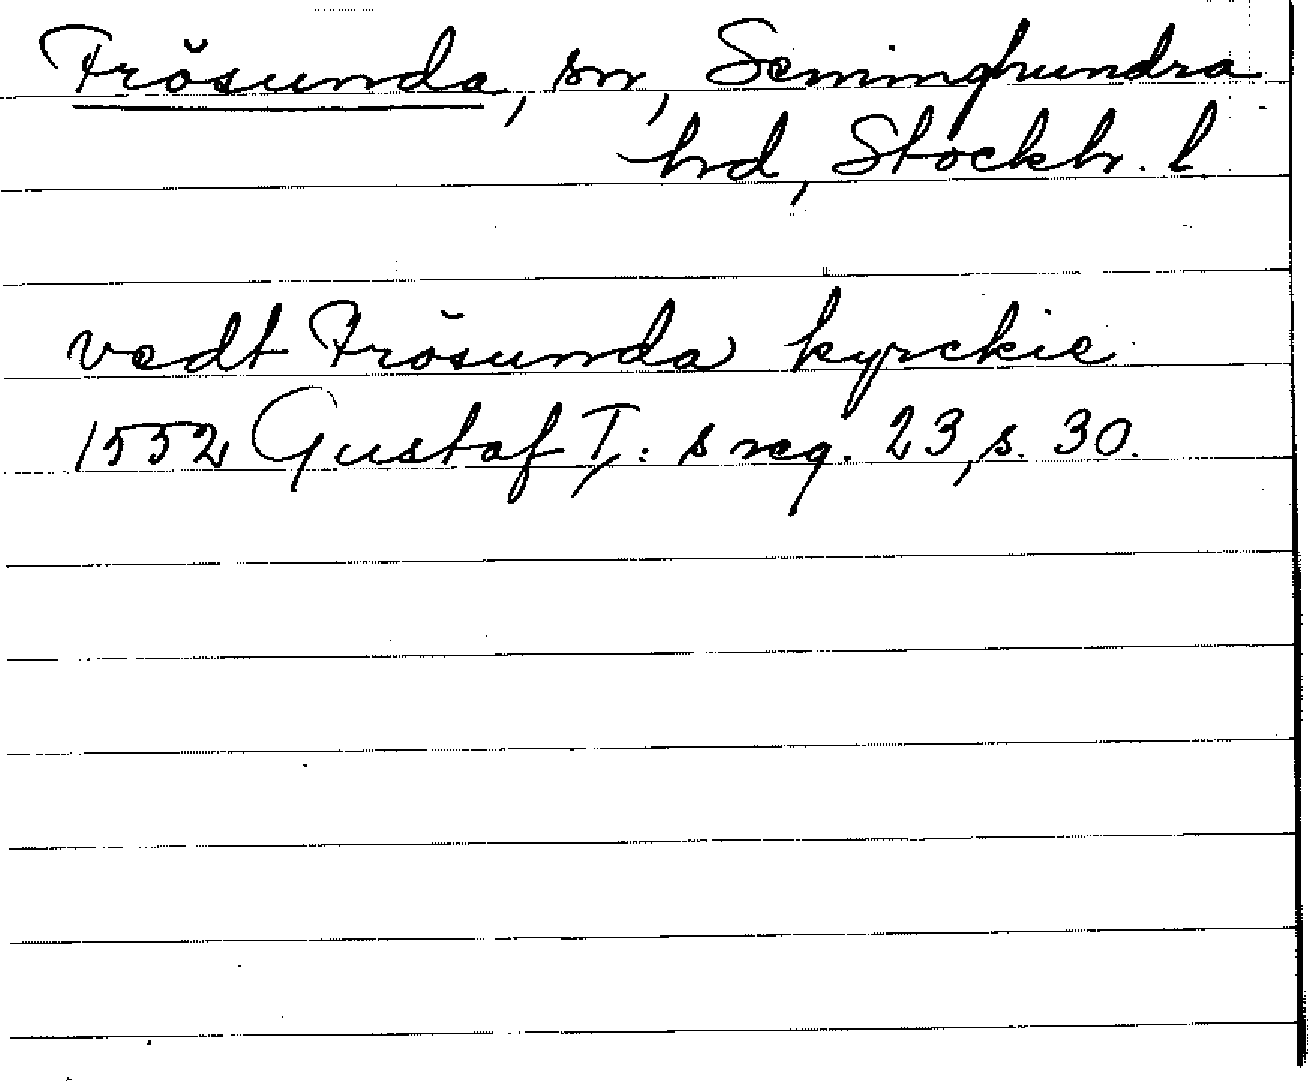 Frösunda, sn, Seminghundra
hrd, Stockh. l.
vedt Frösunda kyrckie
1552 Gustaf I: s reg. 23, s. 30.